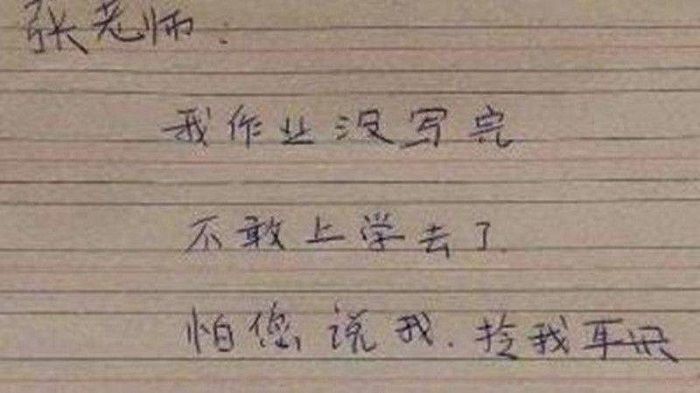 张老师:
我作业没写完
不敢上学去了
怕您说我.拎我耳